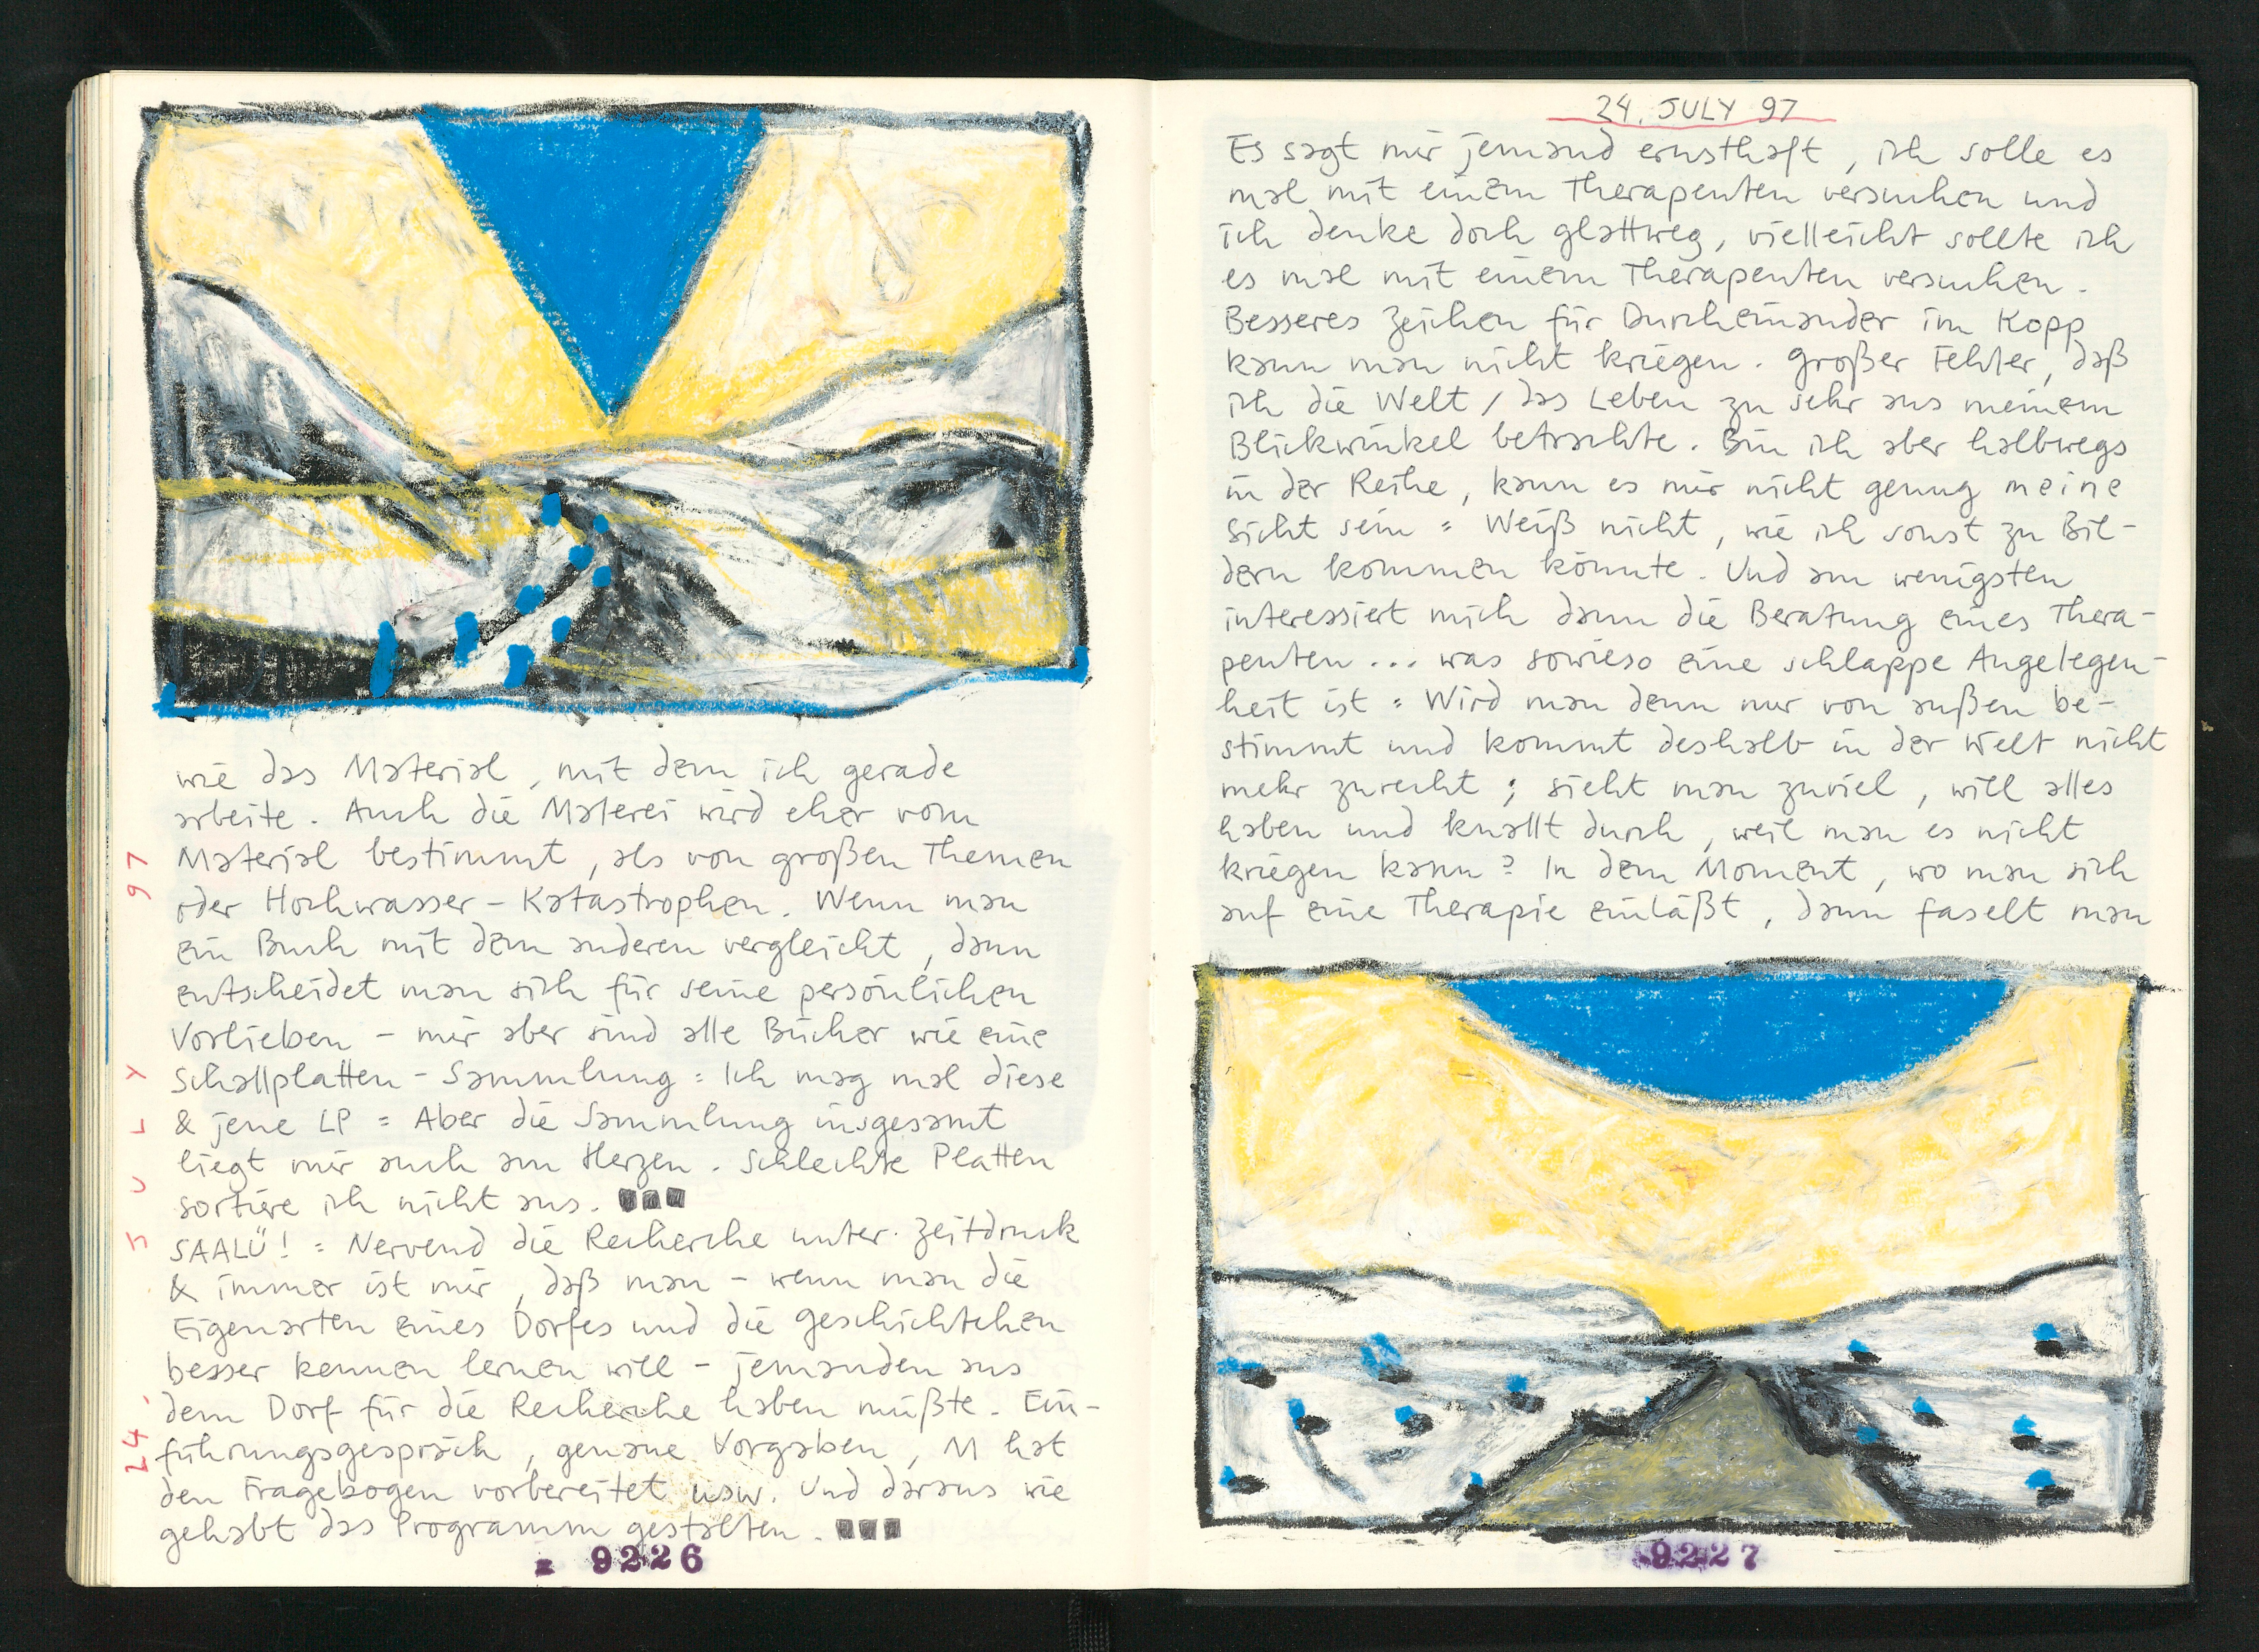 wie das Material, mit dem ich gerade
arbeite. Auch die Malerei wird eher vom
Material bestimmt, als von großen Themen
oder Hochwasser-Katastrophen. Wenn man
ein Buch mit dem anderen vergleicht, dann
entscheidet man sich für seine persönlichen
Vorlieben - mir aber sind alle Bücher wie eine
Schallplatten-Sammlung = Ich mag mal diese
& jene LP = Aber die Sammlung insgesamt
liegt mir auch am Herzen. Schlechte Platten
sortiere ich nicht aus.
SAALÜ! = Nervend die Recherche unter Zeitdruck
& immer ist mir, daß man - wenn man die
Eigenarten eines Dorfes und die Geschichtchen
besser kennen lernen will - jemanden aus
dem Dorf für die Recherche haben müßte. Ein-
führungsgespräch, genaue Vorgaben, M hat
den Fragebogen vorbereitet usw. Und daraus wie
gehabt das Programm gestalten.
24. JULY 97
9226
24. JULY 97
Es sagt mir jemand ernsthaft, ich solle es
mal mit einem Therapeuten versuchen und
ich denke doch glattweg, vielleicht sollte ich
es mal mit einem Therapeuten versuchen.
Besseres Zeichen für Durcheinander im Kopp
kann man nicht kriegen. Großer Fehler, daß
ich die Welt / das Leben zu sehr aus meinem
Blickwinkel betrachte. Bin ich aber halbwegs
in der Reihe, kann es mir nicht genug meine
Sicht sein = Weiß nicht, wie ich sonst zu Bil-
dern kommen könnte. Und am wenigsten
interessiert mich dann die Beratung eines Thera-
peuten ... was sowieso eine schlappe Angelegen-
heit ist = Wird man denn nur von außen be-
stimmt und kommt deshalb in der Welt nicht
mehr zurecht; sieht man zuviel, will alles
haben und knallt durch, weil man es nicht
kriegen kann? In dem Moment, wo man sich
auf eine Therapie einläßt, dann faselt man
9227